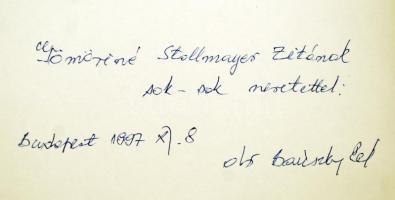 Tömöriné Stollmayer Zitának
sok-sok szeretettel:
Budapest 1997 XI. 8
dr